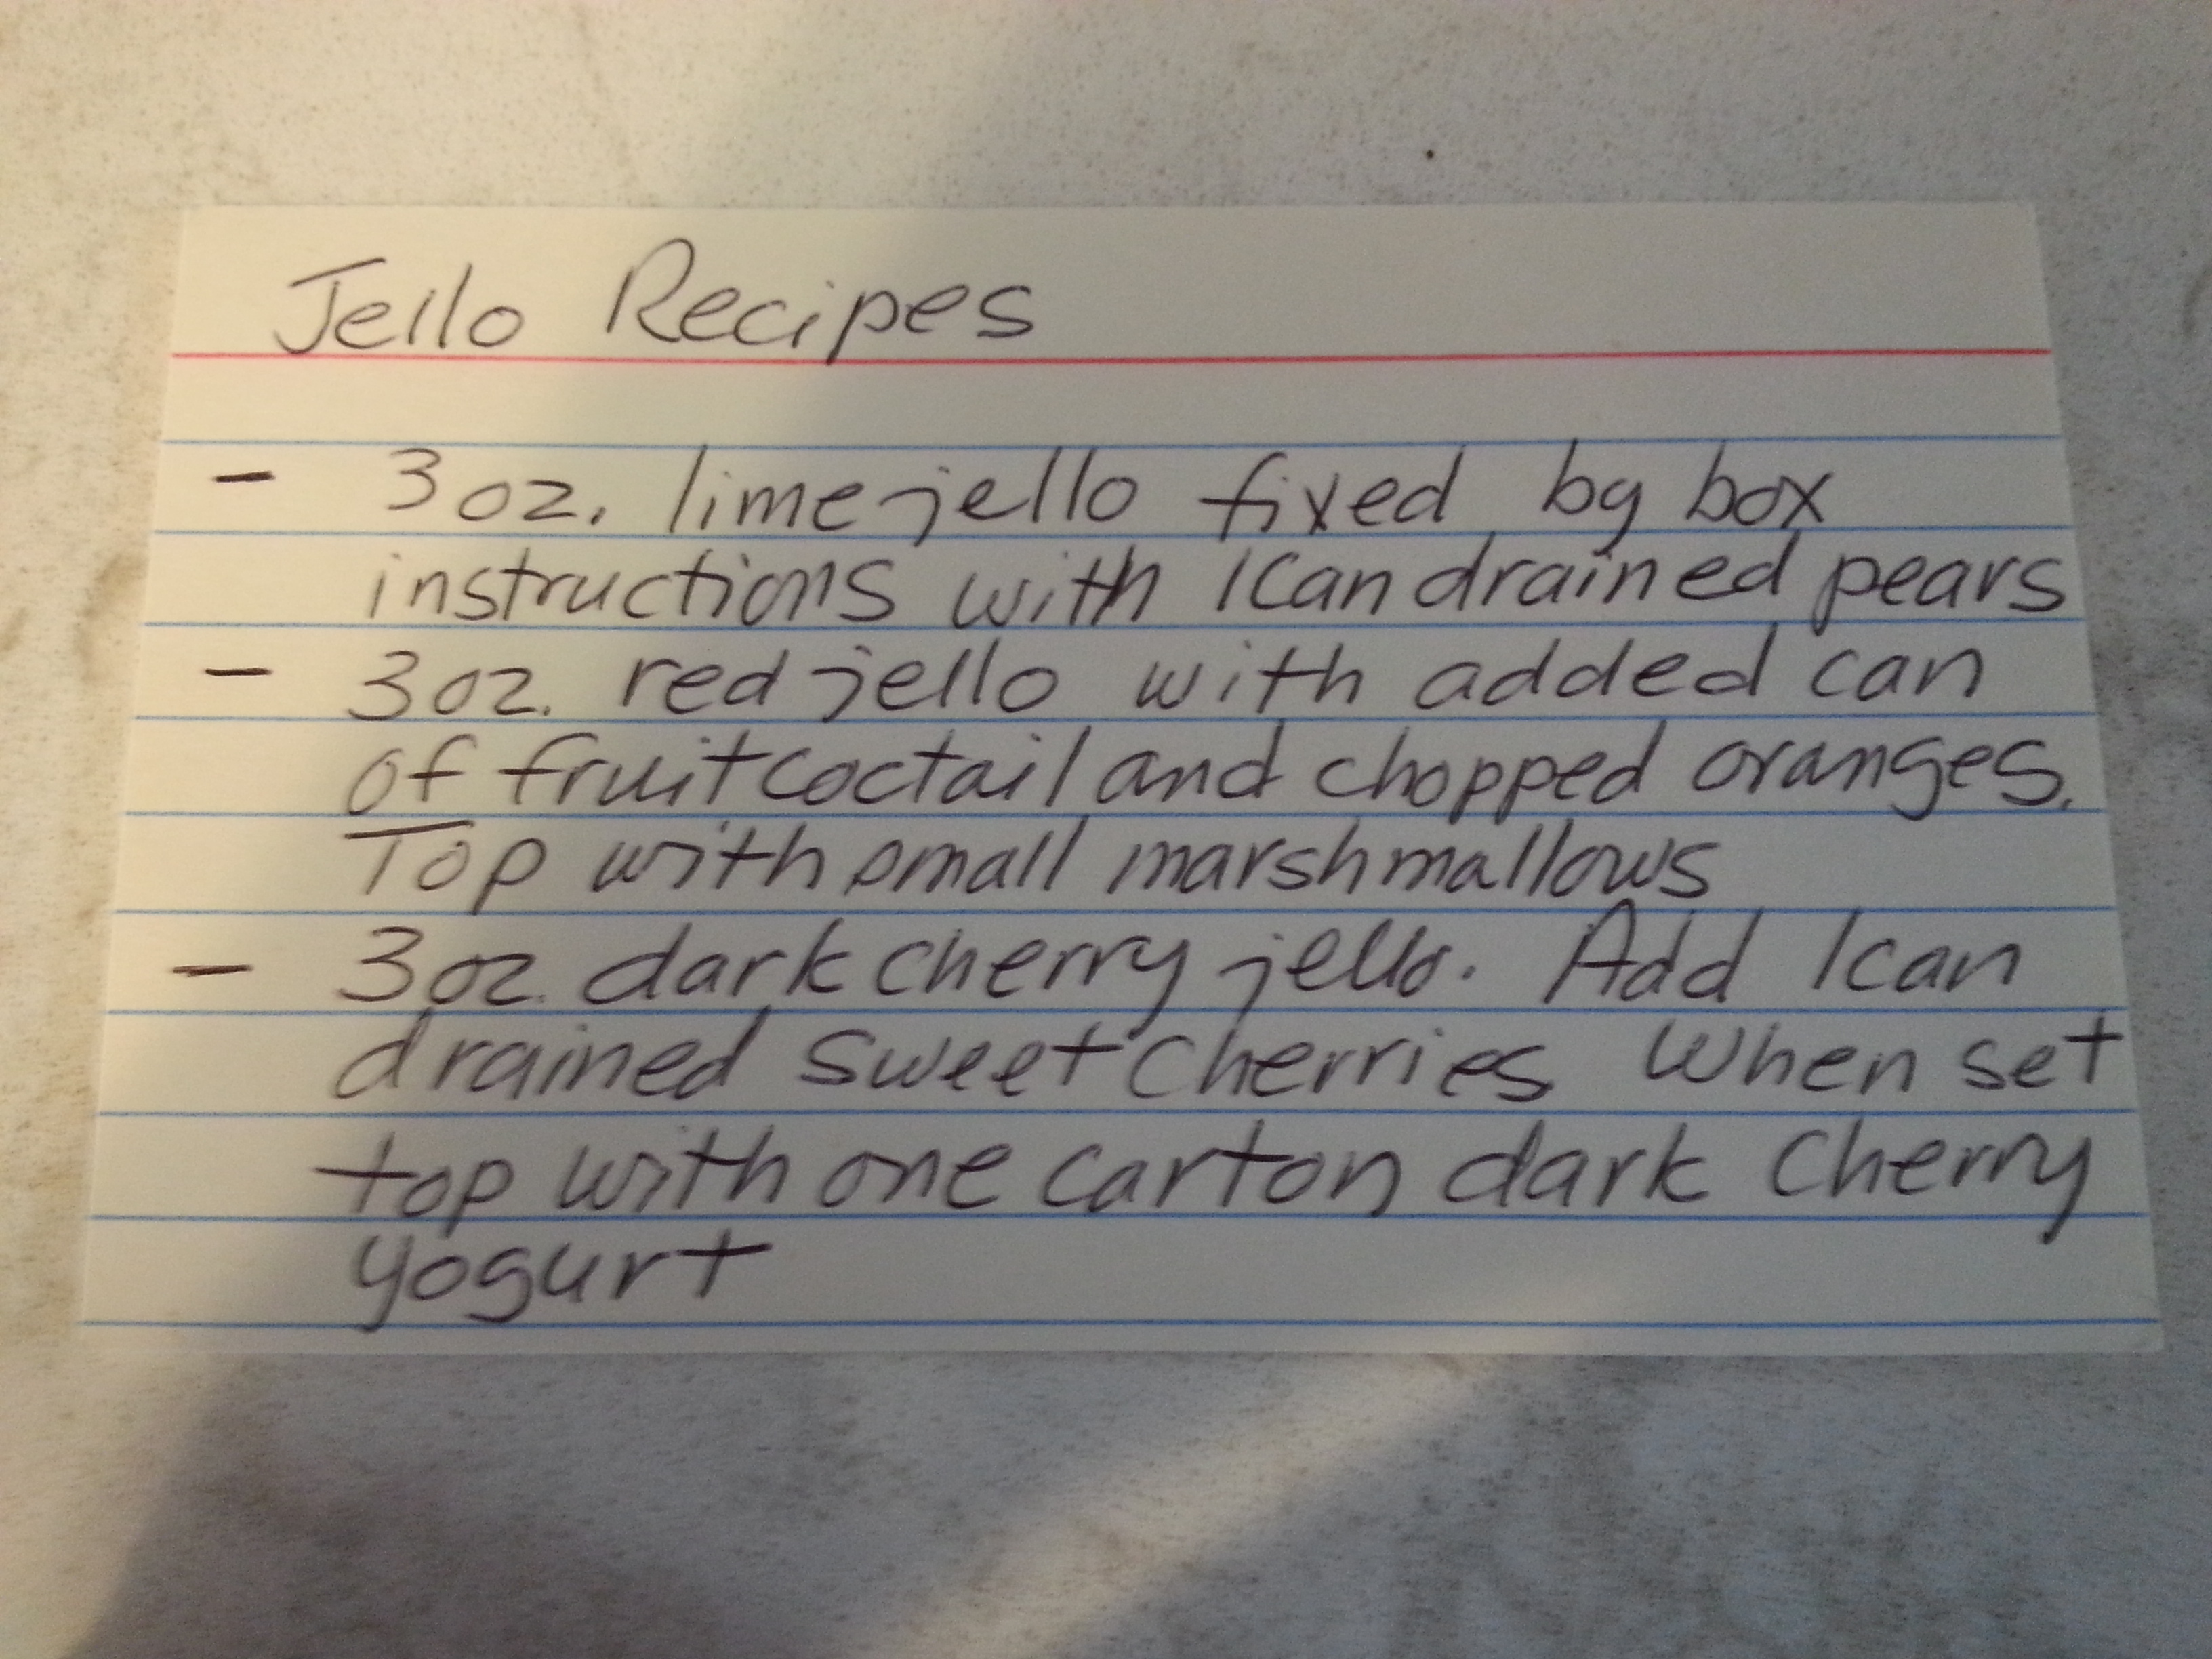 Jello Recipes
- 3 oz. lime jello fixed by box
instructions with 1 can drained pears
- 3 oz. red jello with added can
of fruit coctail and chopped oranges.
Top with small marshmallows
- 3 oz. dark cherry jello. Add 1 can
drained sweet cherries When set
top with one carton dark cherry
yogurt